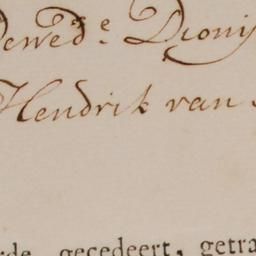 Dewed.e Diony
Hendrik van
rde, gecedeert, getra